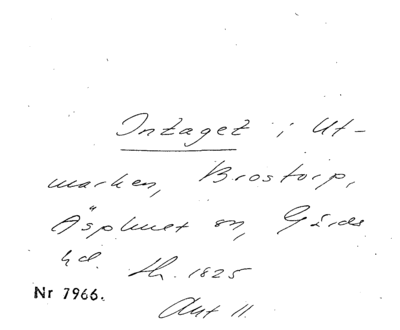 Intaget i Ut-
marken, Brostorp,
Äsphult sn, Gärds
hd. Sk. 1825
Nr 7966.
Akt 11.